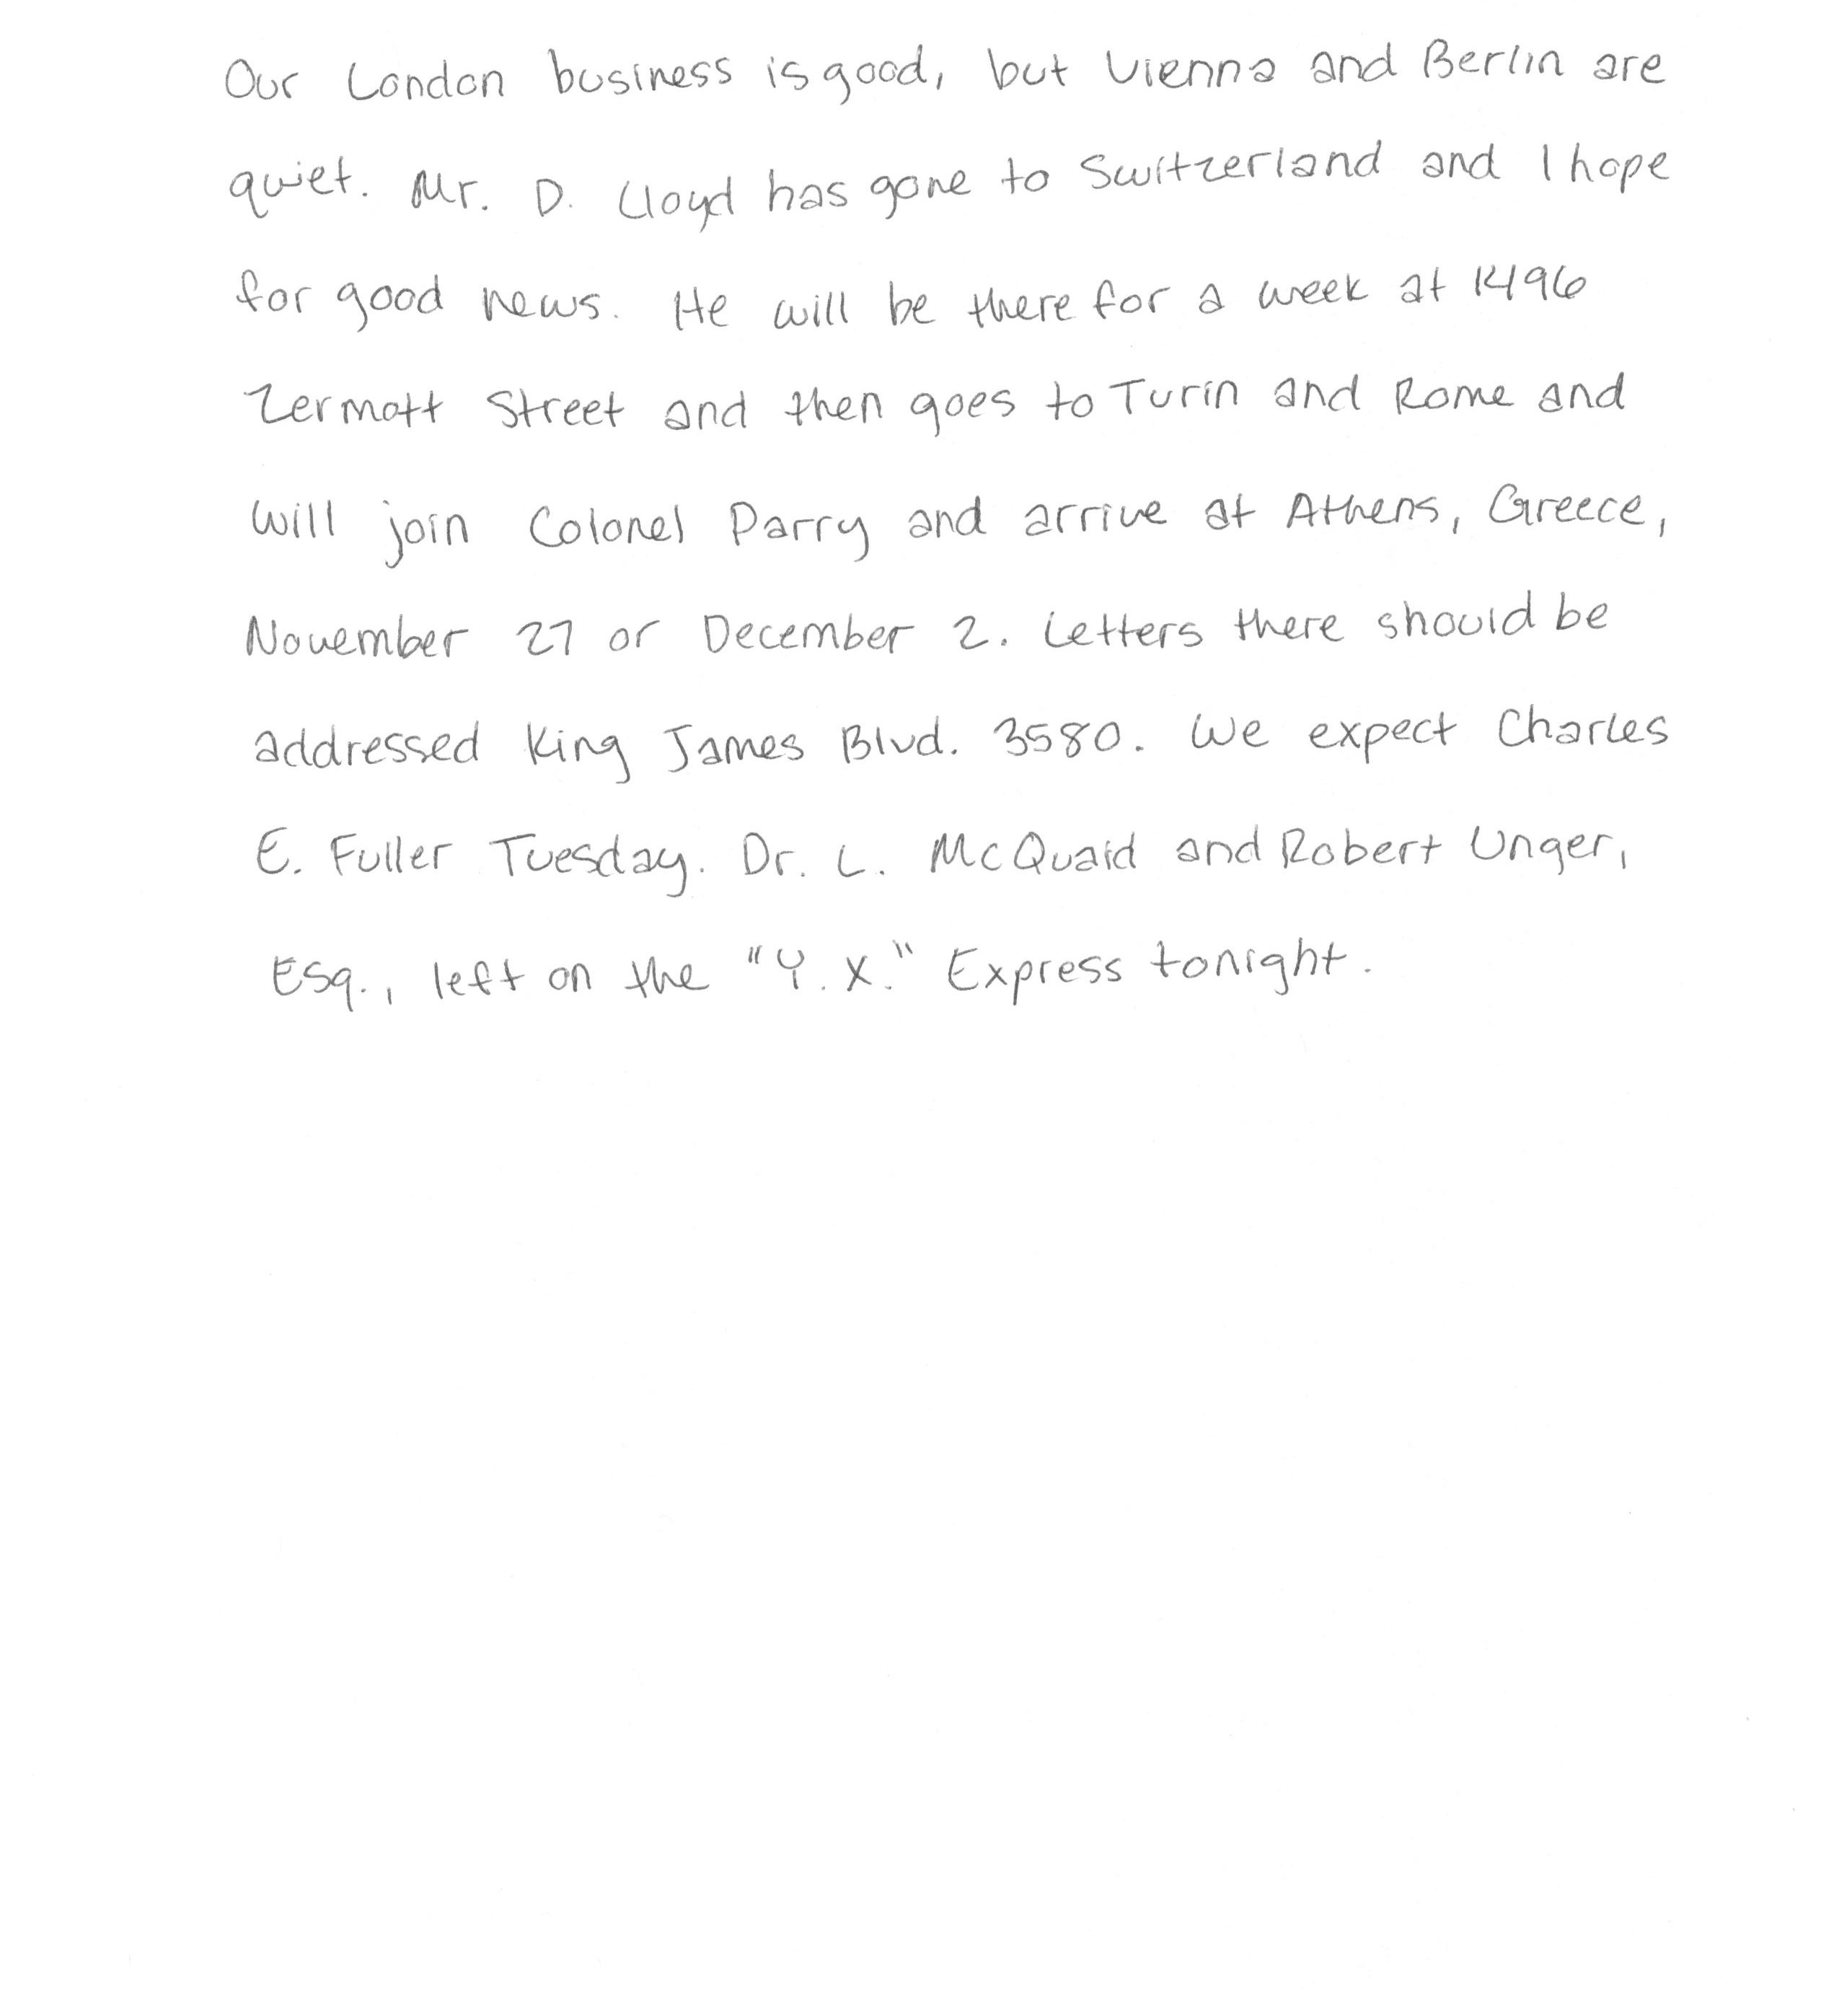 Our London business is good, but Vienna and Berlin are
quiet. Mr. D. Lloyd has gone to Switzerland and I hope
for good news. He will be there for a week at 1496
Zermott Street and then goes to Turin and Rome and
will join Colonel Parry and arrive at Athens, Greece,
November 27 or December 2. Letters there should be
addressed King James Blvd. 3580. We expect Charles
E. Fuller Tuesday. Dr. L. McQuaid and Robert Unger,
Esq., left on the "Y.X." Express tonight.